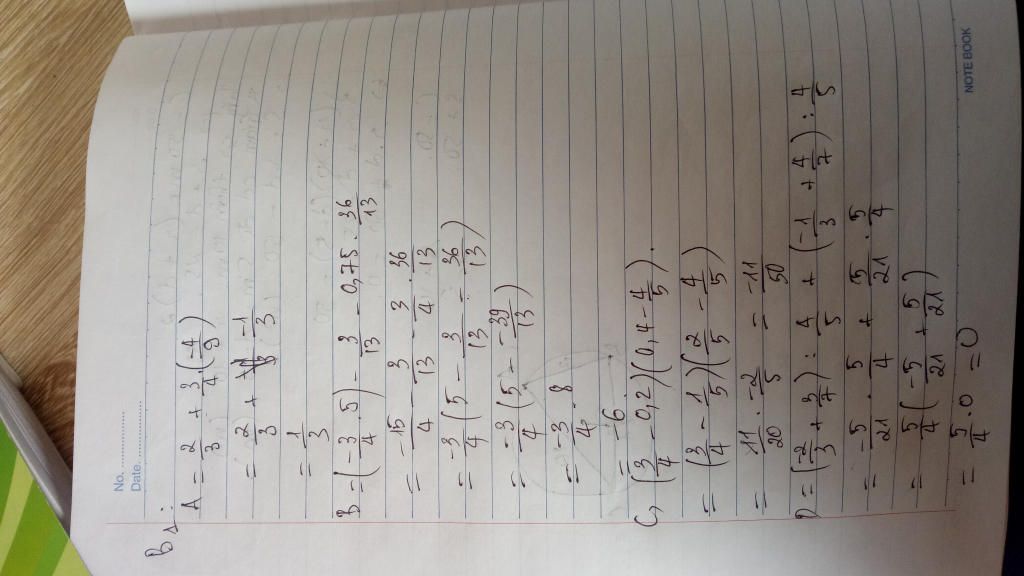 No. ..............
Date. ..............
B1:
A = 2/3 + 3/4 . (-4/9)
= 2/3 + -1/3
= 1/3
B = (-3/4 . 5) - 3/13 - 0,75 . 36/13
= -15/4 - 3/13 - 3/4 . 36/13
= -3/4 (5 - 3/13 - 36/13)
= -3/4 (5 - -39/13)
= -3/4 . 8
= -6.
C, (3/4 - 0,2)(0,4 - 4/5).
= (3/4 - 1/5)(2/5 - 4/5)
= 11/20 . -2/5 = -11/50
D = (-2/3 + 3/7) : 4/5 + (-1/3 + 4/7) : 4/5
= -5/21 . 5/4 + 5/21 . 5/4
= 5/4 (-5/21 + 5/21)
= 5/4 . 0 = 0
NOTE BOOK